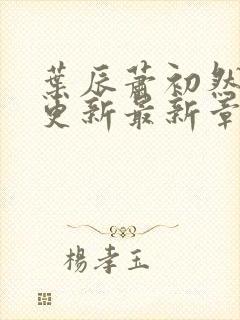 葉辰蕭初然
更新最新章
楊孝玉